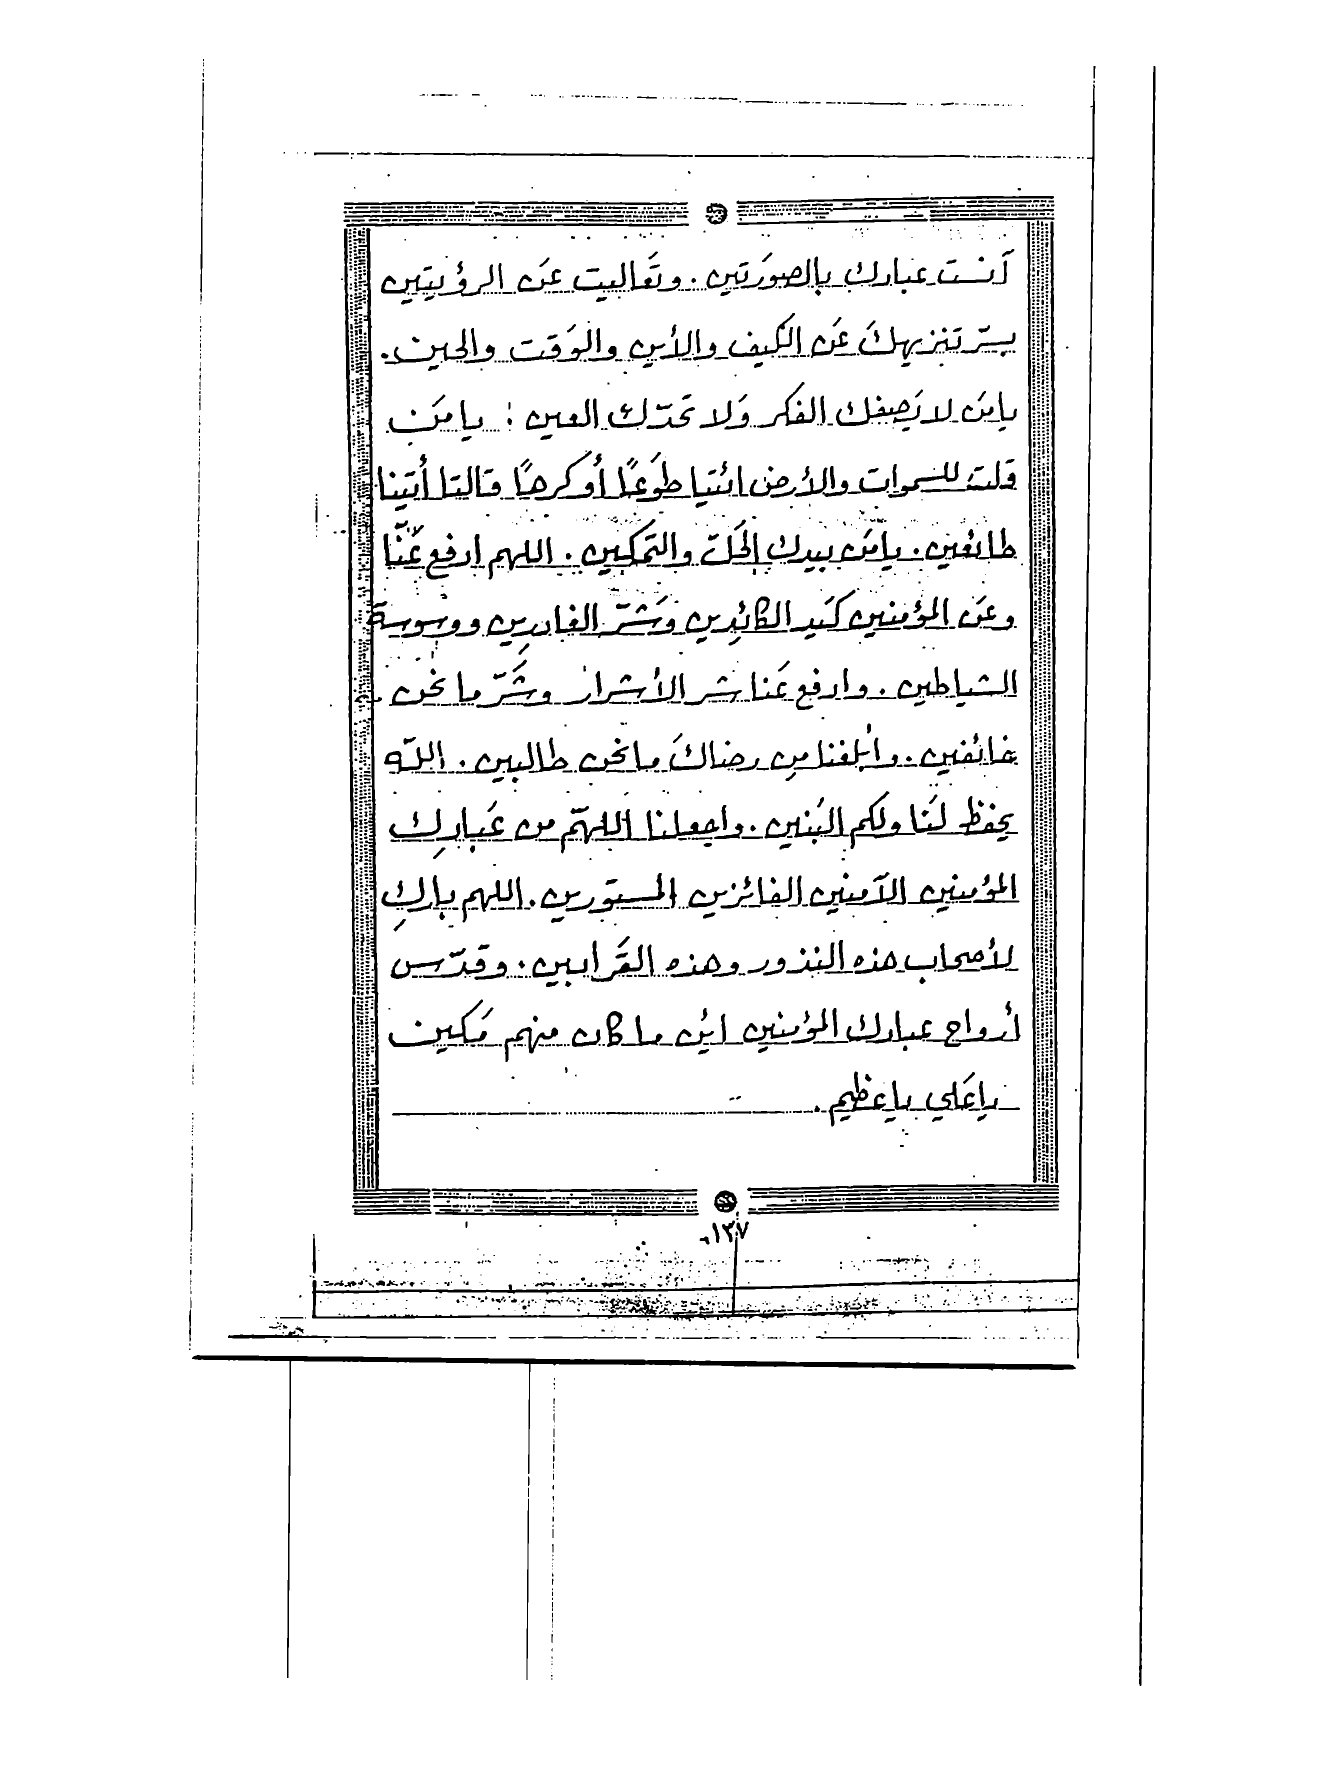 آنست عبادك بالصورَتين . وتَعاليت عنَ الرؤيتين
بسرّ تنزيهكَ عنَ الكَيف والأين والوَقت والحين .
يامنَ لا يَصِفك الفكر وَلا تَحدّك العين : يا منَ
قلتَ للسموات والأرض ائتيا طوَعاً أو كرهاً قالتا أتينا
طائعين . يا منَ بيدك الحَلّ والتمكين . اللهم ادفع عَنَّا
وعنَ المؤمنين كَيد الكائِدين وَشَرّ الغادرِين ووسوسة
الشياطين . وادفع عَنا شر الأشرار وشَرّ ما نحن
خائفين . وأبلغنا مِن رضاكَ ما نحن طالبين . اللّه
يحفظ لنَا ولكم البَنين . واجعلنا اللهمّ من عَبادِك
المؤمنين الآمنين الفائزين المستورين . اللهم بارِك
لأصحاب هذه النذور وهذه القَرابين . وقدّس
أرواح عبادك المؤمنين اين ما كان منهم مَكين
ياعَلي ياعظيم .
١٣٧